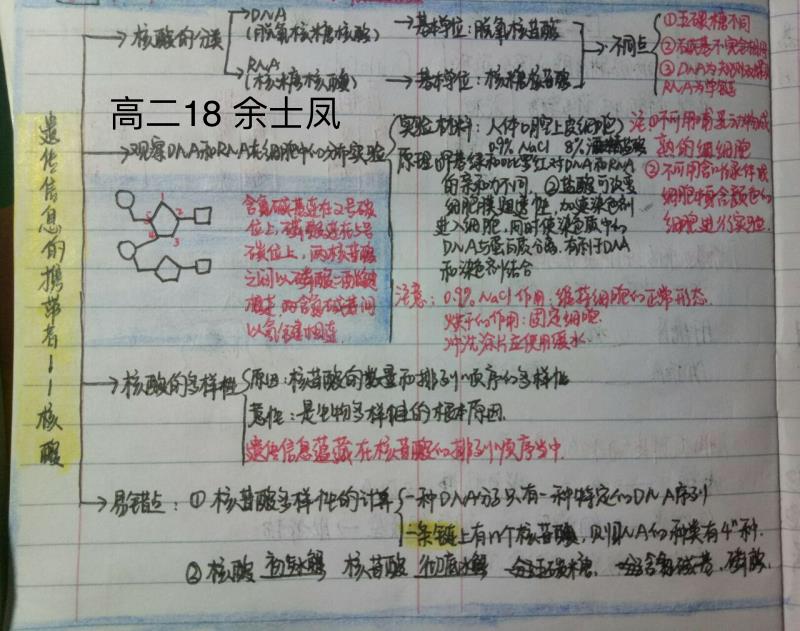 遗传信息的携带者——核酸
核酸的分类
DNA
(脱氧核糖核酸)
基本单位：脱氧核苷酸
RNA
(核糖核酸)
基本单位：核糖核苷酸
不同点
①五碳糖不同
②含碱基不完全相同
③DNA为
RNA为单链
高二18 余士凤
观察DNA和RNA在细胞中的分布实验
实验材料：人体口腔上皮细胞
0.9% NaCl 8% 盐酸
原理 ①甲基绿和吡罗红对DNA和RNA
的亲和力不同，②盐酸可改变
细胞膜通透性，加速染色剂
进入细胞，同时使染色质中的
DNA与蛋白质分离，有利于DNA
和染色剂结合
注①不可用哺乳动物成
熟的红细胞
②不可用含叶绿体或
细胞中含颜色的
细胞进行实验.
1
2
3
4
5
含氮碱基连在1号碳
位上，磷酸连在5号
碳位上，两核苷酸
之间以磷酸二酯键
相连，两含氮碱基间
以氢键相连
注意：0.9% NaCl 作用：维持细胞的正常形态.
烘干的作用：固定细胞
冲洗涂片应使用缓水
核酸的多样性
原因：核苷酸的数量和排列顺序的多样性
意性：是生物多样性的根本原因.
遗传信息蕴藏在核苷酸的排列顺序当中.
易错点：①核苷酸多样性的计算
一种DNA分子只有一种特定的DNA序列
一条链上有n个核苷酸，则DNA的种类有4ⁿ种.
②核酸 初步水解 核苷酸 彻底水解 五碳糖、含氮碱基、磷酸.